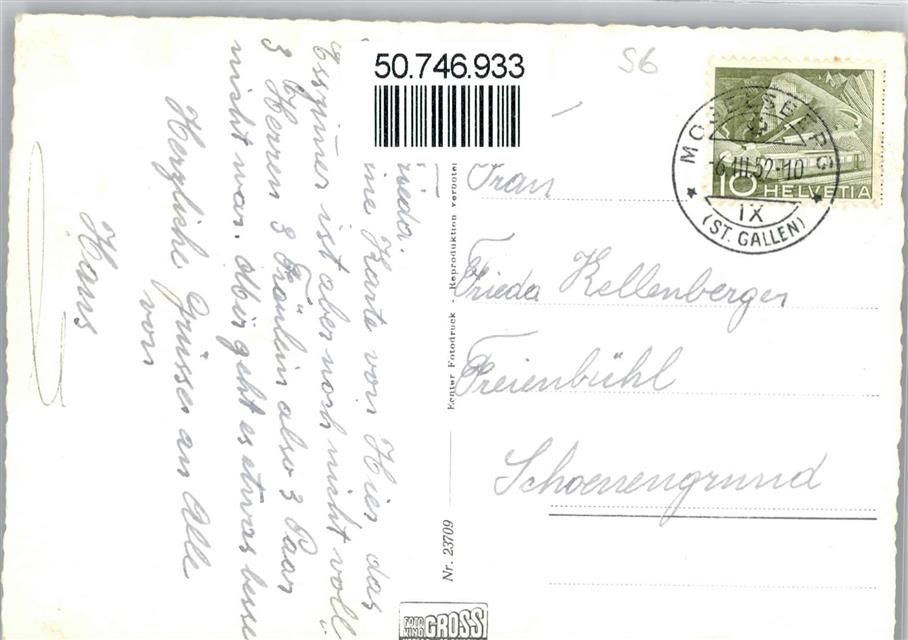 50.746.933
56
MOGELSBERG
-6.III.52-10
IX
(ST. GALLEN)
10 HELVETIA
Frau
Frieda Kellenberger
Freienbühl
Schoenengrund
Echter Fotodruck - Reproduktion verboten
Nr. 23709
FOTO GROSS
rieda.
ine Karte von Hier das
Esszimer ist aber noch nicht voll
3 Herren 3 Fräulein also 3 Paar
nicht war. Mir geht es etwas besse
Herzliche Grüsse an Alle
von
Hans